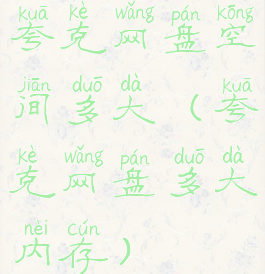 kuā kè wǎng pán kōng
夸克网盘空
jiān duō dà kuā
间多大(夸
kè wǎng pán duō dà
克网盘多大
nèi cún
内存)